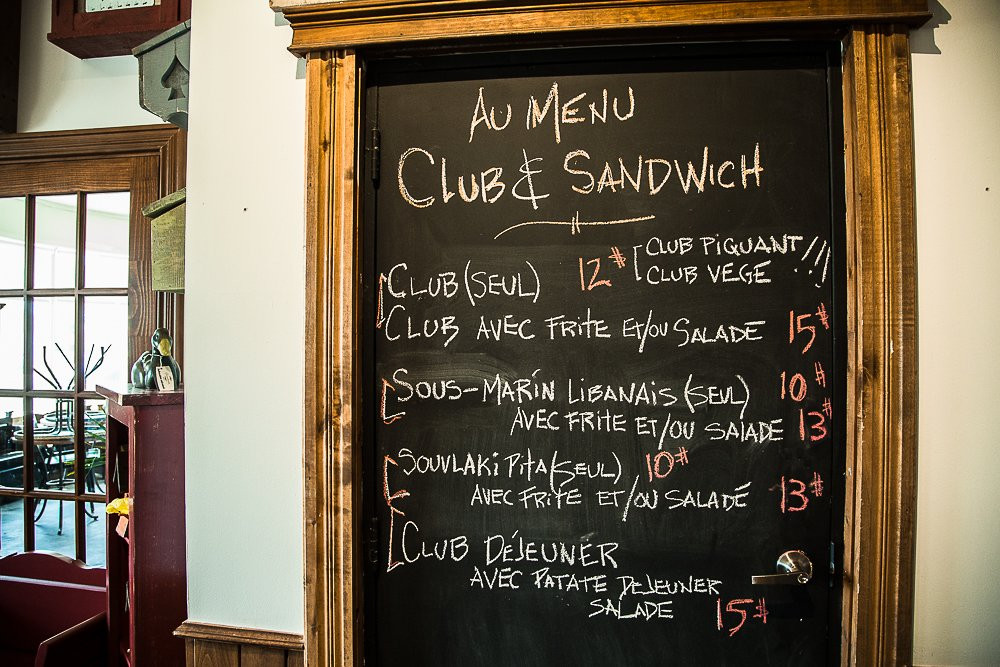 AU MENU
CLUB & SANDWICH
CLUB (SEUL) 12$ [CLUB PIQUANT !!!
CLUB VEGE
CLUB AVEC FRITE ET/OU SALADE 15$
SOUS-MARIN LIBANAIS (SEUL) 10$
AVEC FRITE ET/OU SALADE 13$
SOUVLAKI PITA (SEUL) 10$
AVEC FRITE ET/OU SALADE 13$
CLUB DÉJEUNER
AVEC PATATE DEJEUNER
SALADE 15$